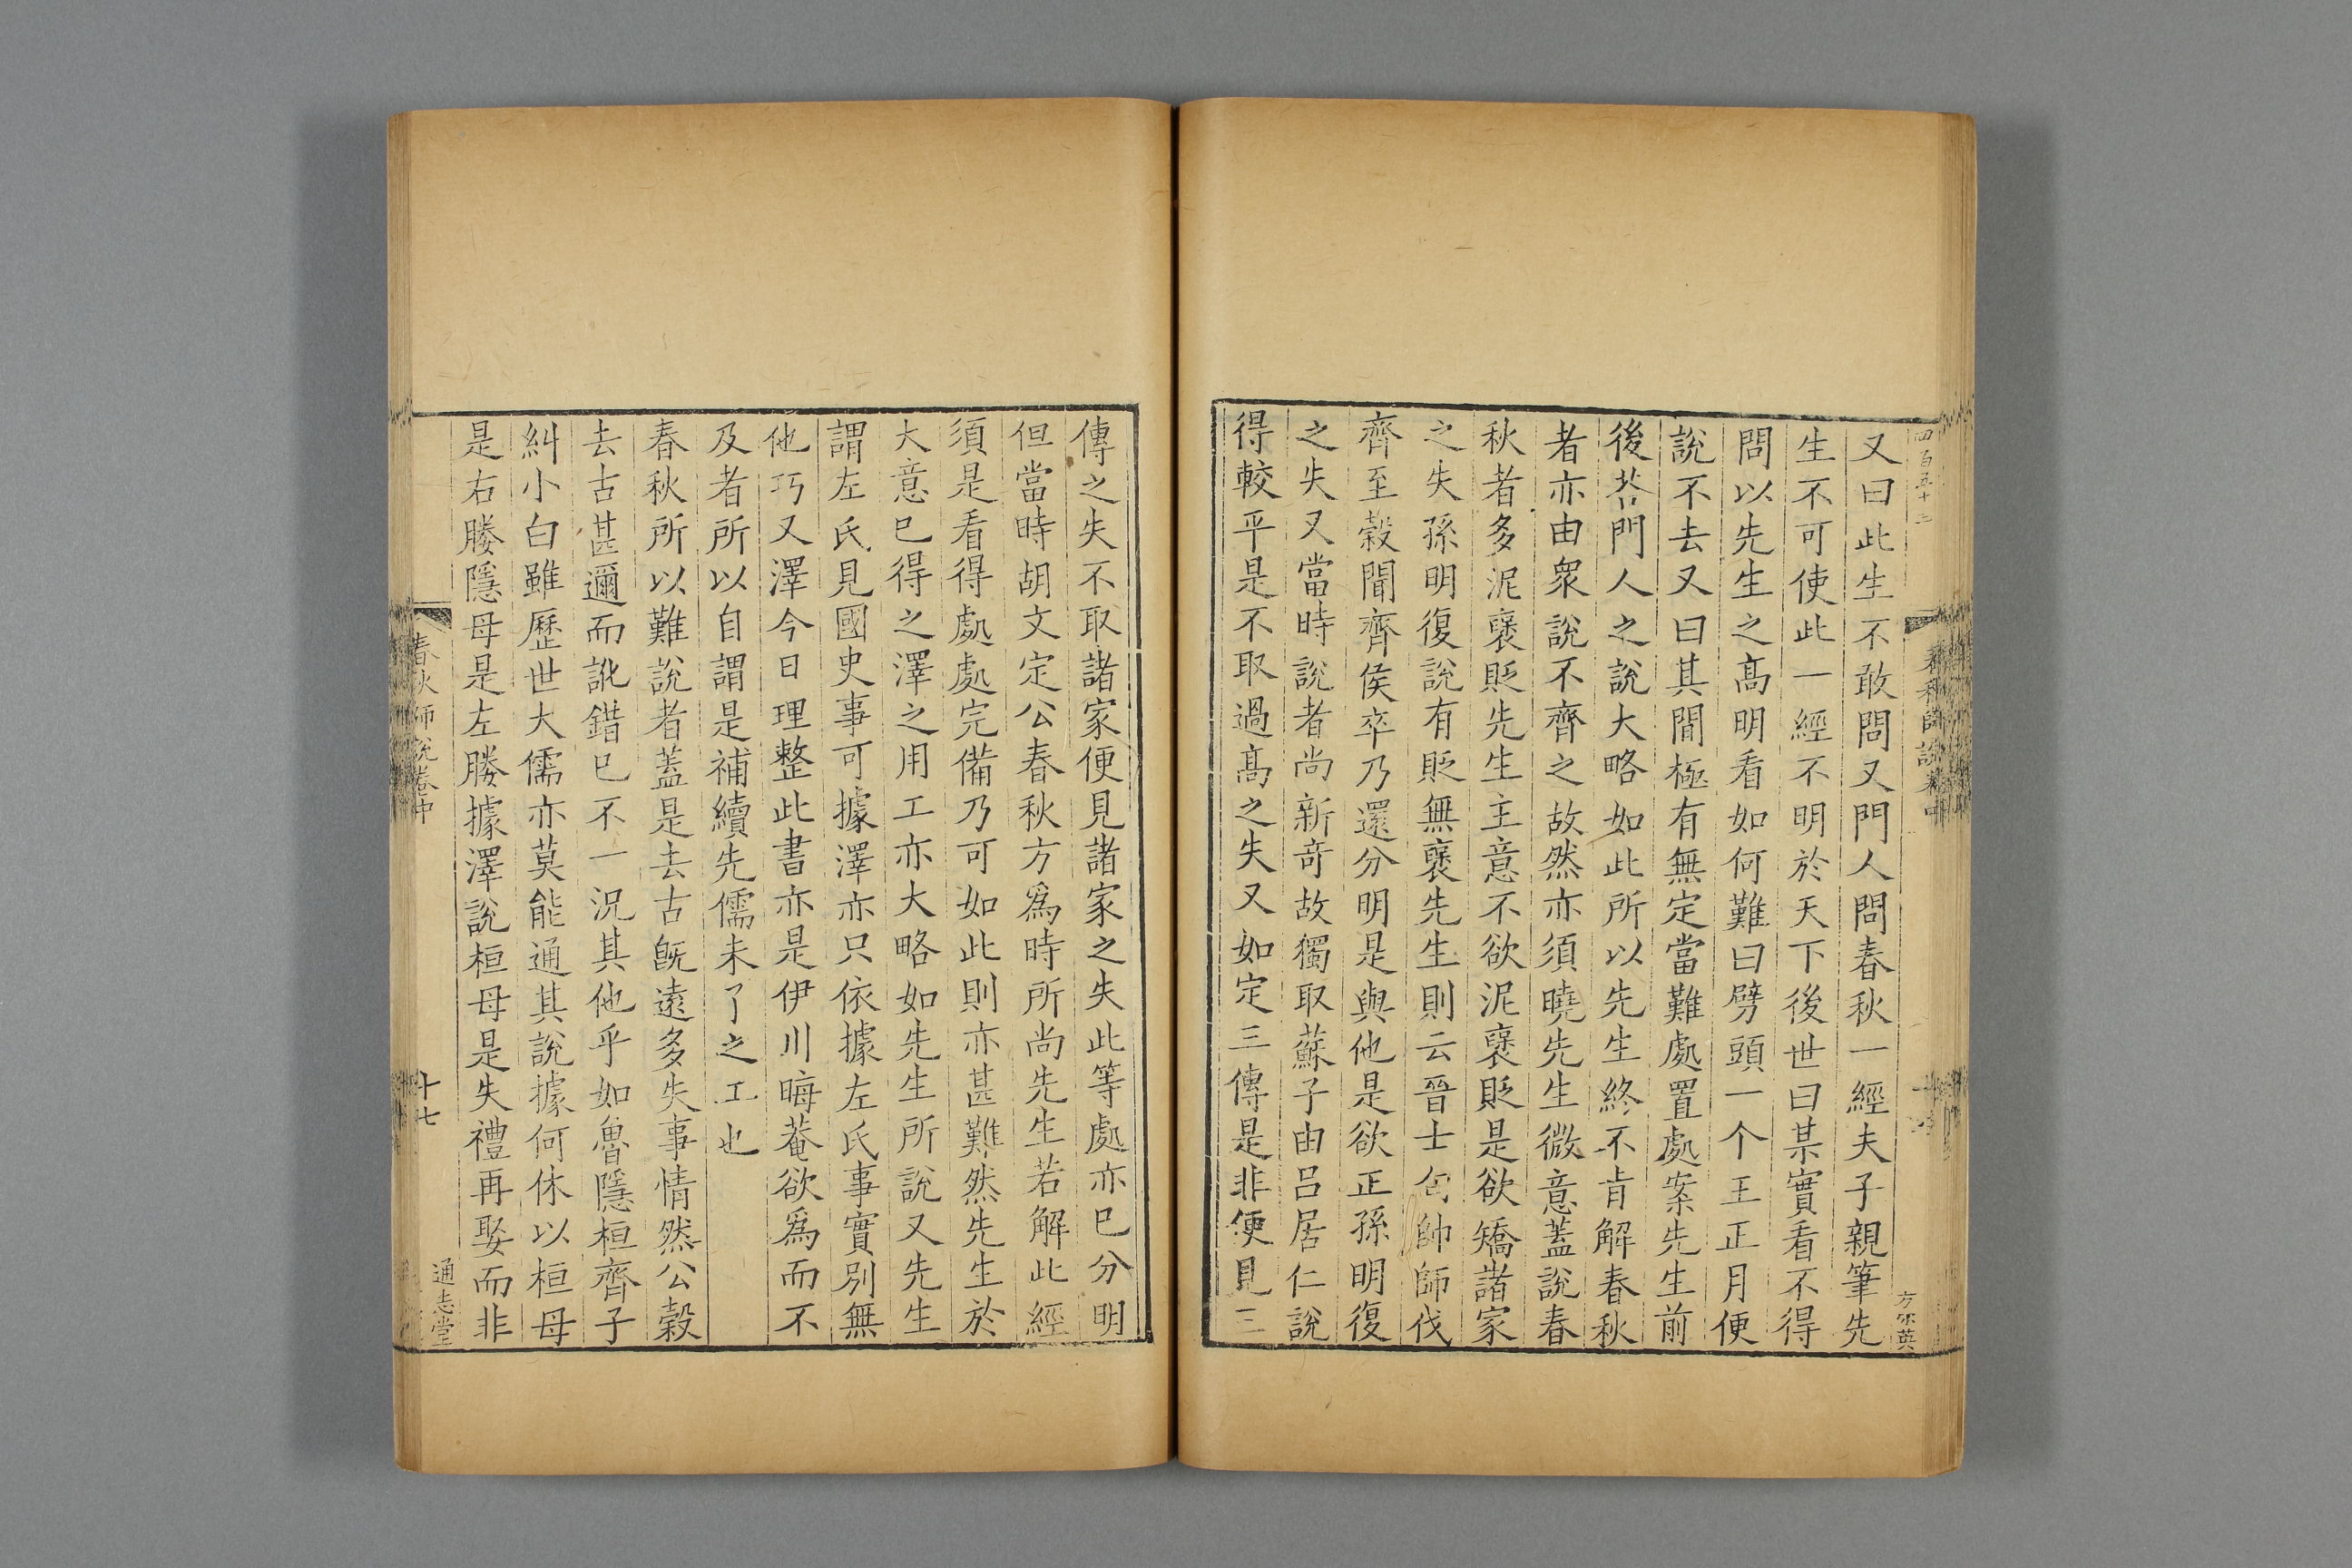 四百五十三
春秋師說卷中
方尔英
又曰此生不敢問又門人問春秋一經夫子親筆先
生不可使此一經不明於天下後世曰某實看不得
問以先生之髙明看如何難曰劈頭一个王正月便
說不去又曰其間極有無定當難處置處案先生前
後荅門人之說大略如此所以先生終不肯解春秋
者亦由衆說不齊之故然亦須曉先生微意蓋說春
秋者多泥襃貶先生主意不欲泥襃貶是欲矯諸家
之失孫明復說有貶無襃先生則云晉士匄帥師伐
齊至榖聞齊侯卒乃還分明是與他是欲正孫明復
之失又當時說者尚新奇故獨取蘇子由吕居仁說
得較平是不取過髙之失又如定三傳是非便見三
傳之失不取諸家便見諸家之失此等處亦巳分明
但當時胡文定公春秋方爲時所尚先生若解此經
須是看得處處完備乃可如此則亦甚難然先生於
大意巳得之澤之用工亦大略如先生所說又先生
謂左氏見國史事可據澤亦只依據左氏事實別無
他巧又澤今日理整此書亦是伊川晦菴欲爲而不
及者所以自謂是補續先儒未了之工也
春秋所以難說者蓋是去古旣遠多失事情然公榖
去古甚邇而訛錯巳不一况其他乎如魯隱桓齊子
糾小白雖歷世大儒亦莫能通其說據何休以桓母
是右媵隱母是左媵據澤說桓母是失禮再娶而非
春秋師說卷中
十七
通志堂